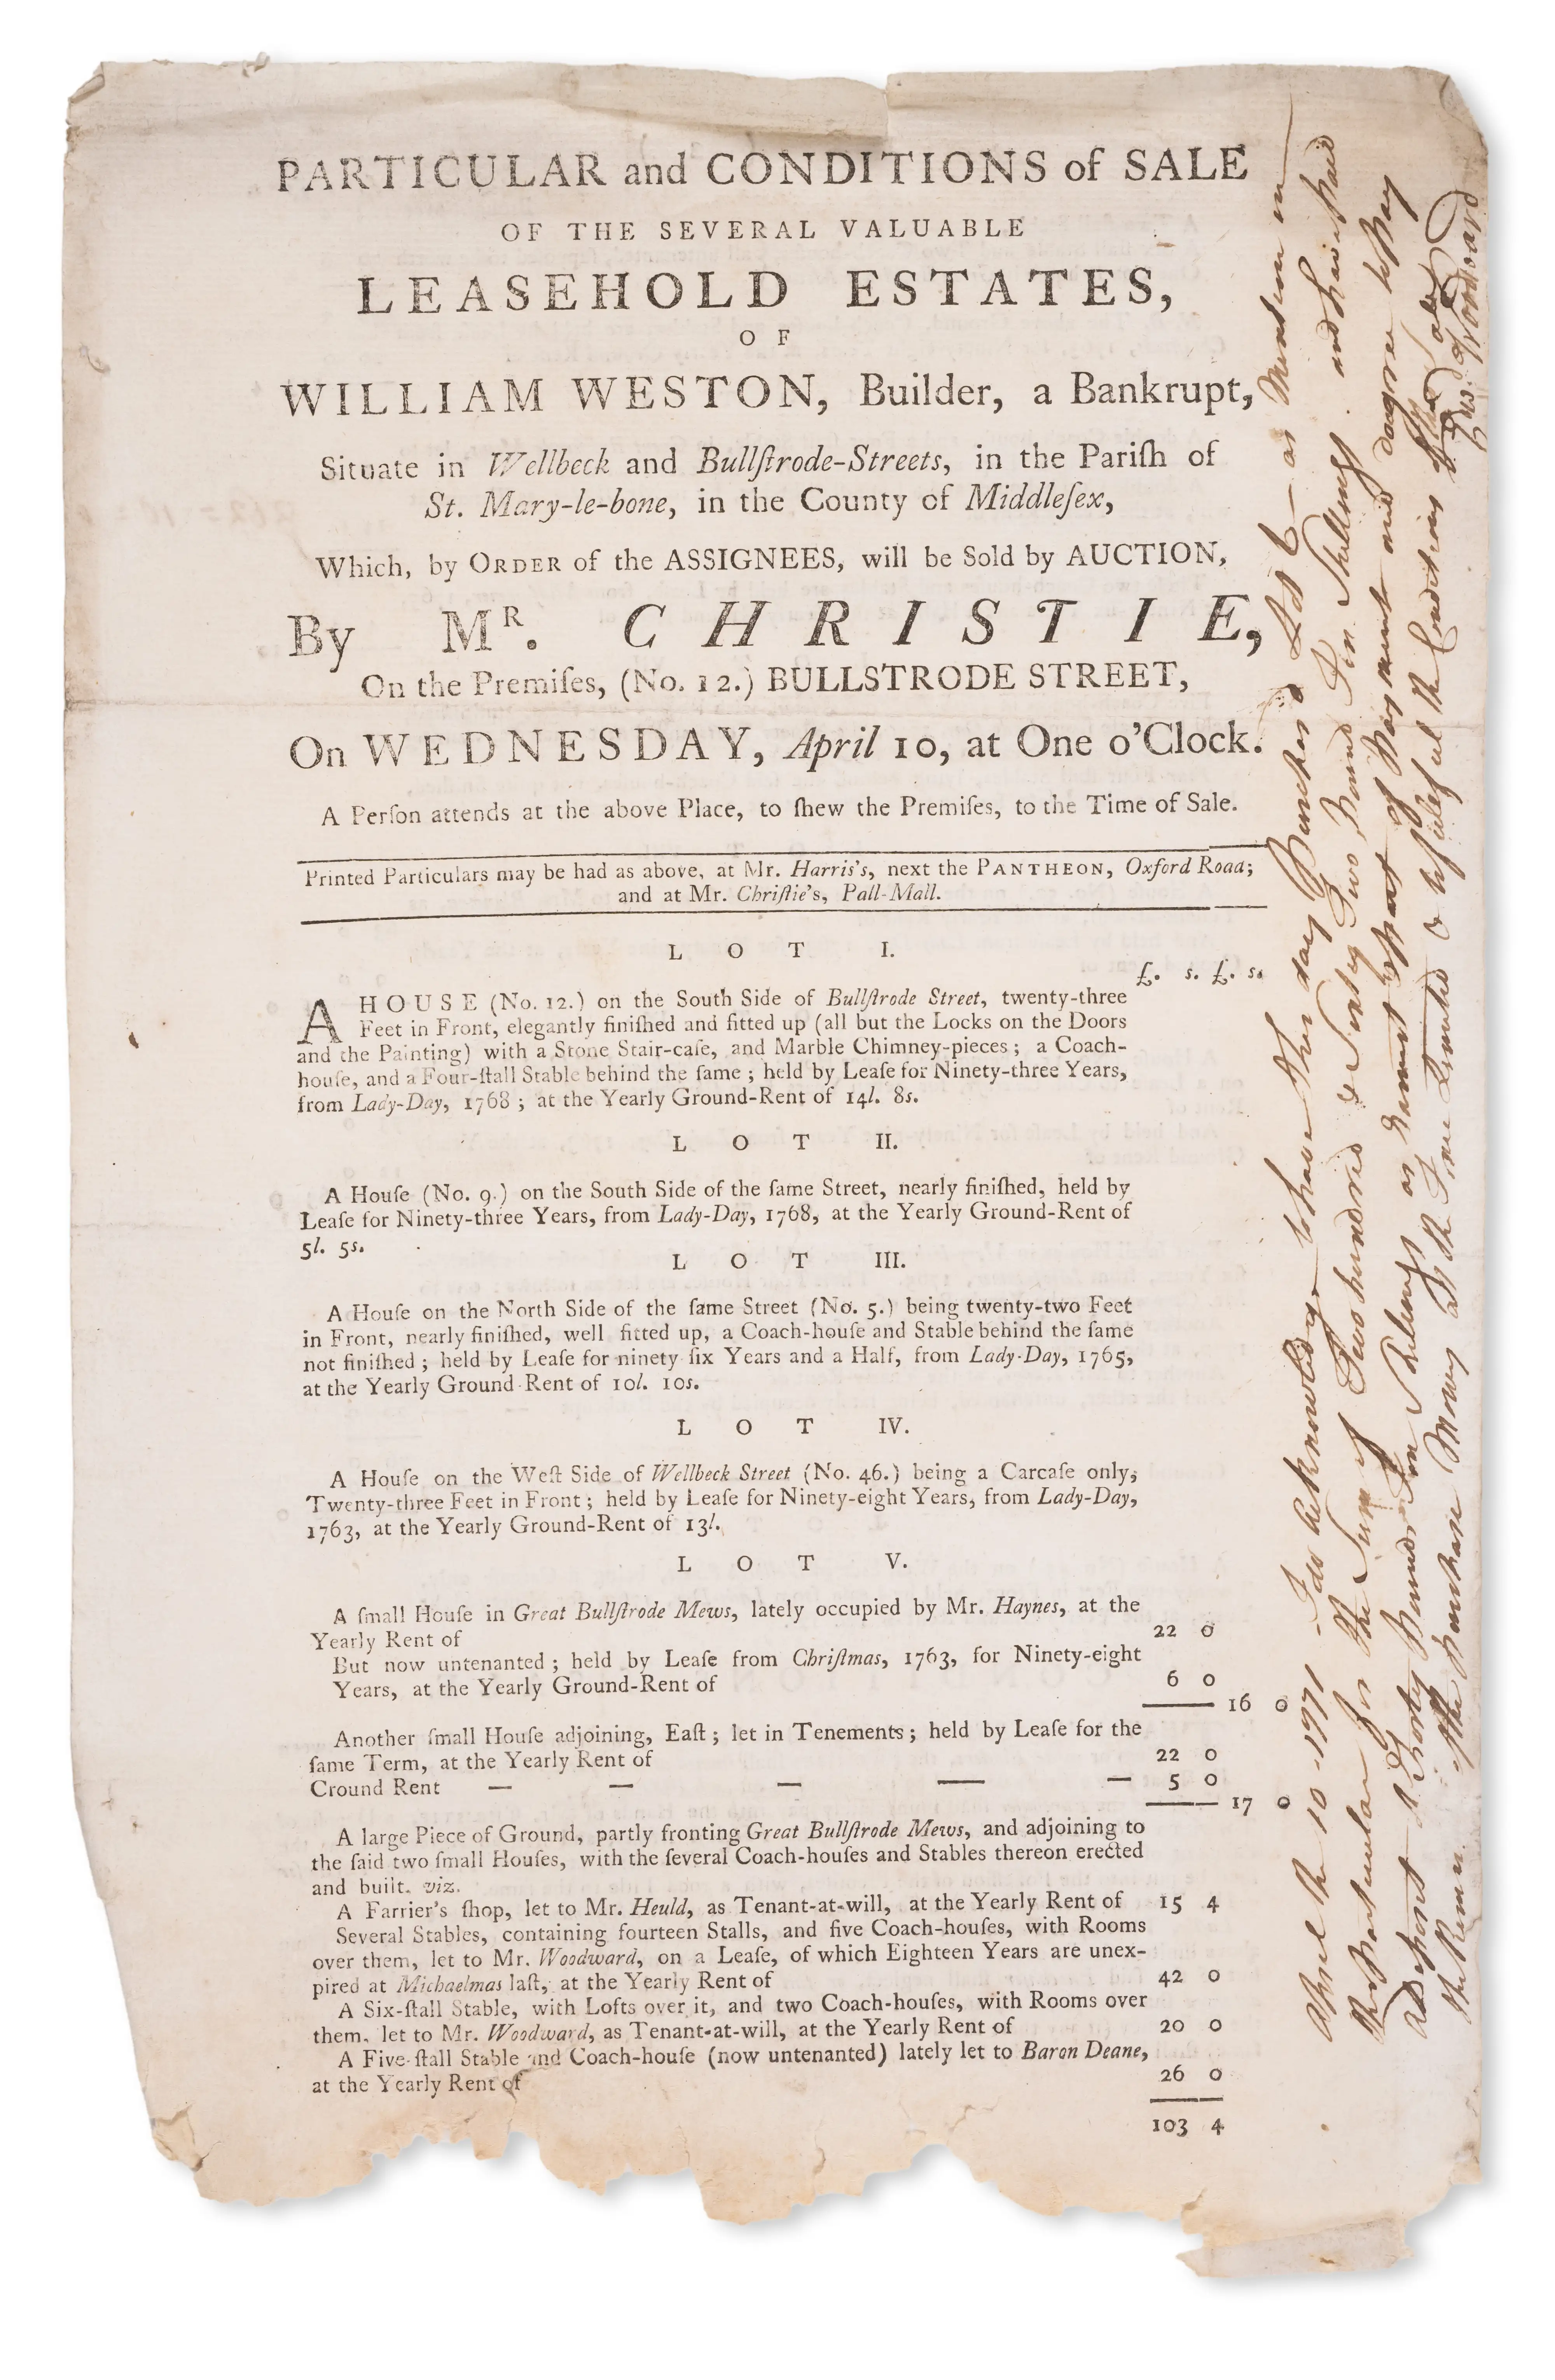 PARTICULAR and CONDITIONS of SALE
OF THE SEVERAL VALUABLE
LEASEHOLD ESTATES,
OF
WILLIAM WESTON, Builder, a Bankrupt,
Situate in Wellbeck and Bullſtrode-Streets, in the Pariſh of
St. Mary-le-bone, in the County of Middleſex,
Which, by ORDER of the ASSIGNEES, will be Sold by AUCTION,
By MR. CHRISTIE,
On the Premiſes, (No. 12.) BULLSTRODE STREET,
On WEDNESDAY, April 10, at One o'Clock.
A Perſon attends at the above Place, to ſhew the Premiſes, to the Time of Sale.
Printed Particulars may be had as above, at Mr. Harris's, next the PANTHEON, Oxford Road;
and at Mr. Chriſtie's, Pall-Mall.
LOT I.
£. s. £. s.
A HOUSE (No. 12.) on the South Side of Bullſtrode Street, twenty-three
Feet in Front, elegantly finiſhed and fitted up (all but the Locks on the Doors
and the Painting) with a Stone Stair-caſe, and Marble Chimney-pieces; a Coach-
houſe, and a Four-ſtall Stable behind the ſame; held by Leaſe for Ninety-three Years,
from Lady-Day, 1768; at the Yearly Ground-Rent of 14l. 8s.
LOT II.
A Houſe (No. 9.) on the South Side of the ſame Street, nearly finiſhed, held by
Leaſe for Ninety-three Years, from Lady-Day, 1768, at the Yearly Ground-Rent of
5l. 5s.
LOT III.
A Houſe on the North Side of the ſame Street (No. 5.) being twenty-two Feet
in Front, nearly finiſhed, well fitted up, a Coach-houſe and Stable behind the ſame
not finiſhed; held by Leaſe for ninety ſix Years and a Half, from Lady-Day, 1765,
at the Yearly Ground-Rent of 10l. 10s.
LOT IV.
A Houſe on the Weſt Side of Wellbeck Street (No. 46.) being a Carcaſe only,
Twenty-three Feet in Front; held by Leaſe for Ninety-eight Years, from Lady-Day,
1763, at the Yearly Ground-Rent of 13l.
LOT V.
A ſmall Houſe in Great Bullſtrode Mews, lately occupied by Mr. Haynes, at the
Yearly Rent of 22 0
But now untenanted; held by Leaſe from Chriſtmas, 1763, for Ninety-eight
Years, at the Yearly Ground-Rent of 6 0
16 0
Another ſmall Houſe adjoining, Eaſt; let in Tenements; held by Leaſe for the
ſame Term, at the Yearly Rent of 22 0
Cround Rent — — — — — 5 0
17 0
A large Piece of Ground, partly fronting Great Bullſtrode Mews, and adjoining to
the ſaid two ſmall Houſes, with the ſeveral Coach-houſes and Stables thereon erected
and built. viz.
A Farrier's ſhop, let to Mr. Heuld, as Tenant-at-will, at the Yearly Rent of 15 4
Several Stables, containing fourteen Stalls, and five Coach-houſes, with Rooms
over them, let to Mr. Woodward, on a Leaſe, of which Eighteen Years are unex-
pired at Michaelmas laſt, at the Yearly Rent of 42 0
A Six-ſtall Stable, with Lofts over it, and two Coach-houſes, with Rooms over
them, let to Mr. Woodward, as Tenant-at-will, at the Yearly Rent of 20 0
A Five-ſtall Stable and Coach-houſe (now untenanted) lately let to Baron Deane,
at the Yearly Rent of 26 0
103 4
April the 10 - 1771 - I do acknowledge to have this day Purchas'd Lot 6 - as Mention in
this Particular for the Sum of Two hundred & Sixty Two Pound Ten Shillings. and have paid
a Deposit of Pound Ten Shillings as earnest & part of Payment and do agree to pay
the Remn. of the purchase Money at the Time Limited & to fulful the Conditions of the Sale
Woodward